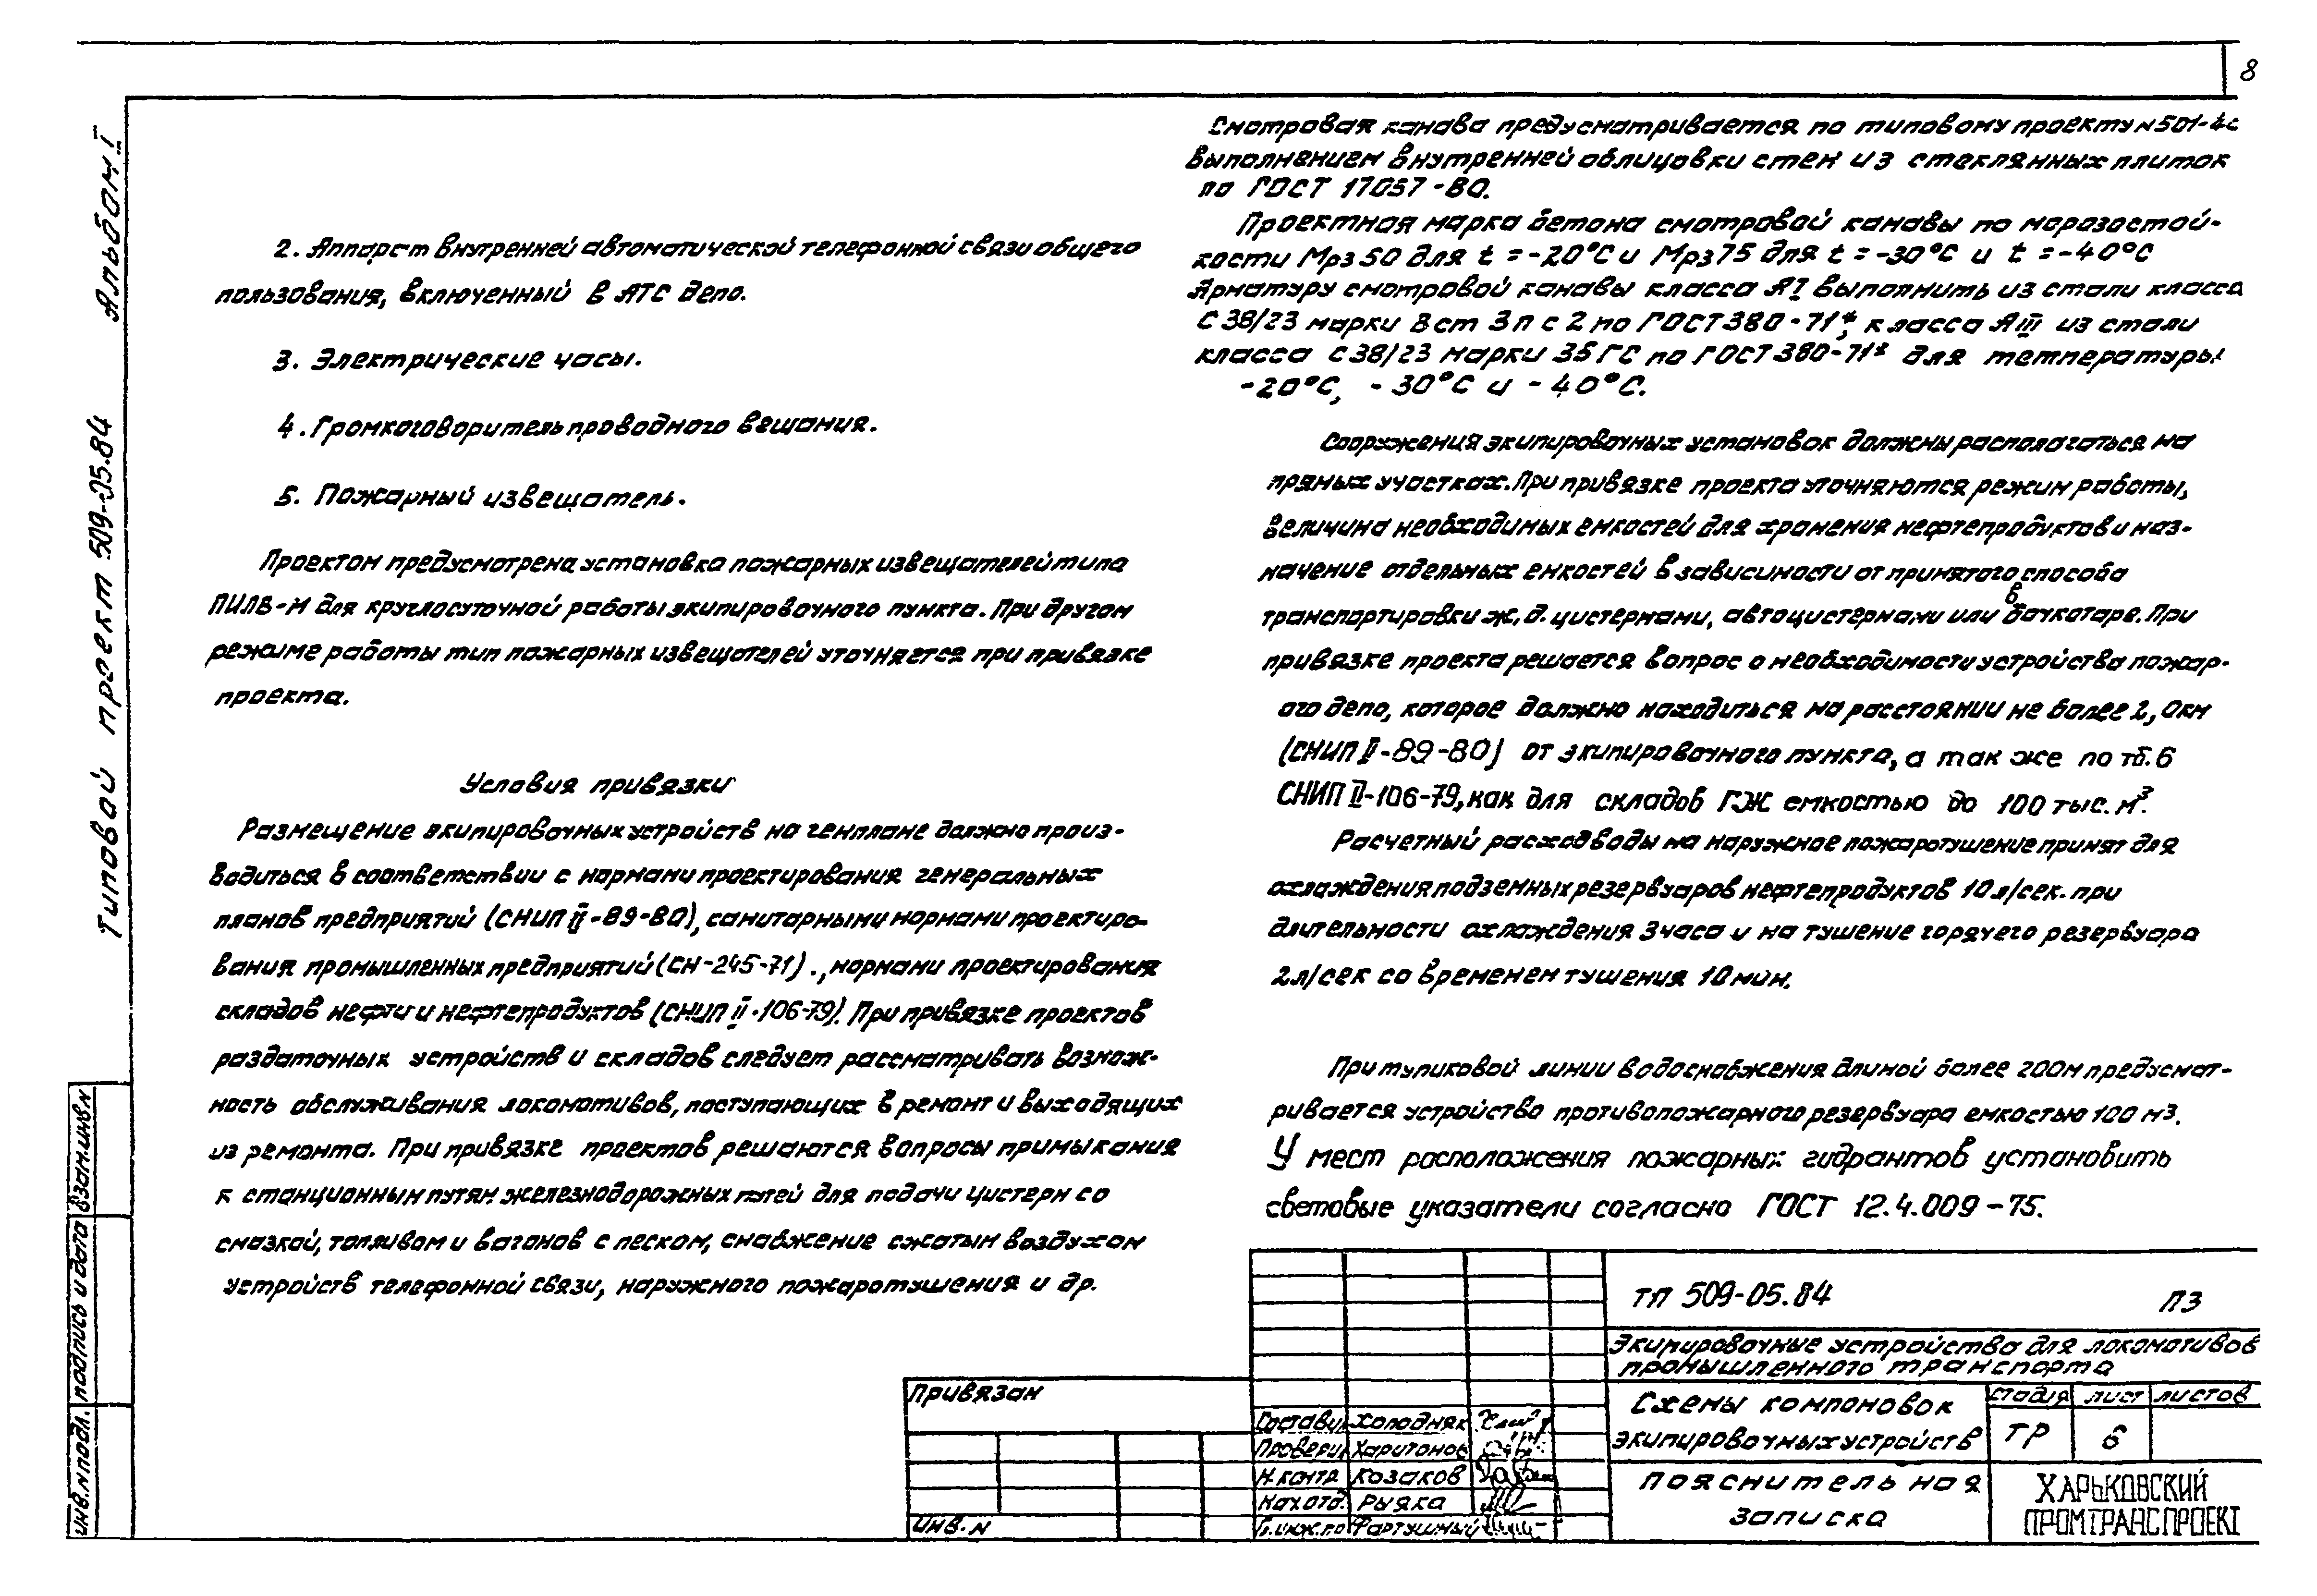 8
Альбом I
Типовой проект 509-05.84
2. Аппарат внутренней автоматической телефонной связи общего
пользования, включенный в АТС депо.
3. Электрические часы.
4. Громкоговоритель проводного вещания.
5. Пожарный извещатель.
Проектом предусмотрена установка пожарных извещателей типа
ПИЛВ-М для круглосуточной работы экипировочного пункта. При другом
режиме работы тип пожарных извещателей уточняется при привязке
проекта.
Условия привязки
Размещение экипировочных устройств на генплане должно произ-
водиться в соответствии с нормами проектирования генеральных
планов предприятий (СНИП II-89-80), санитарными нормами проектиро-
вания промышленных предприятий (СН-245-71)., нормами проектирования
складов нефти и нефтепродуктов (СНИП II-106-79). При привязке проектов
раздаточных устройств и складов следует рассматривать возмож-
ность обслуживания локомотивов, поступающих в ремонт и выходящих
из ремонта. При привязке проектов решаются вопросы примыкания
к станционным путям железнодорожных путей для подачи цистерн со
смазкой, топливом и вагонов с песком, снабжение сжатым воздухом
устройств телефонной связи, наружного пожаротушения и др.
Смотровая канава предусматривается по типовому проекту н 501-4с
выполнением внутренней облицовки стен из стеклянных плиток
по ГОСТ 17057-80.
Проектная марка бетона смотровой канавы по морозостой-
кости Мрз 50 для t = -20°С и Мрз 75 для t = -30°С и t = -40°С
Арматуру смотровой канавы класса АI выполнить из стали класса
С 38/23 марки В ст 3 п с 2 по ГОСТ 380-71*, класса АIII из стали
класса С 38/23 марки 35 ГС по ГОСТ 380-71* для температуры
-20°С, -30°С и -40°С.
Сооружения экипировочных установок должны располагаться на
прямых участках. При привязке проекта уточняются режим работы,
величина необходимых емкостей для хранения нефтепродуктов и наз-
начение отдельных емкостей в зависимости от принятого способа
транспортировки ж.д. цистернами, автоцистернами или в бочкотаре. При
привязке проекта решается вопрос о необходимости устройства пожар-
ого депо, которое должно находиться на расстоянии не более 2,0км
(СНИП II-89-80) от экипировочного пункта, а так же по тб. 6
СНИП II-106-79, как для складов ГЖ емкостью до 100 тыс. м³.
Расчетный расход воды на наружное пожаротушение принят для
охлаждения подземных резервуаров нефтепродуктов 10 л/сек. при
длительности охлаждения 3 часа и на тушение горячего резервуара
2л/сек со временем тушения 10 мин.
При тупиковой линии водоснабжения длиной более 200м предусмат-
ривается устройство противопожарного резервуара емкостью 100 м³.
У мест расположения пожарных гидрантов установить
световые указатели согласно ГОСТ 12.4.009-75.
ТП 509-05.84 ПЗ
Экипировочные устройства для локомотивов
промышленного транспорта
Схемы компоновок
экипировочных устройств
стадия лист листов
ТР 6
Пояснительная
записка
ХАРЬКОВСКИЙ
ПРОМТРАНСПРОЕКТ
Привязан
Инв. н
Состави. Холодняк
Провери. Харитонов
Н.контр. Козаков
Нач.отд. Рыяка
Гл.инж.по Фартушный
Инв.н подл. Подпись и дата Взам.инв.н